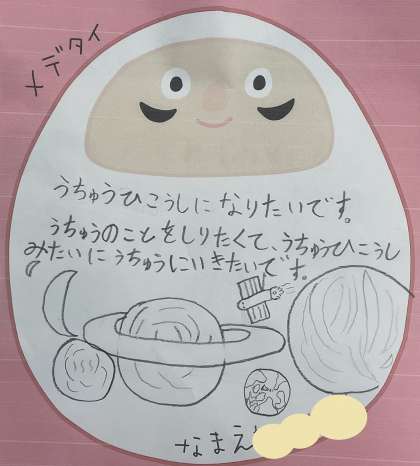 メデタイ
うちゅうひこうしになりたいです。
うちゅうのことをしりたくて、うちゅうひこうし
みたいにうちゅうにいきたいです。
なまえ